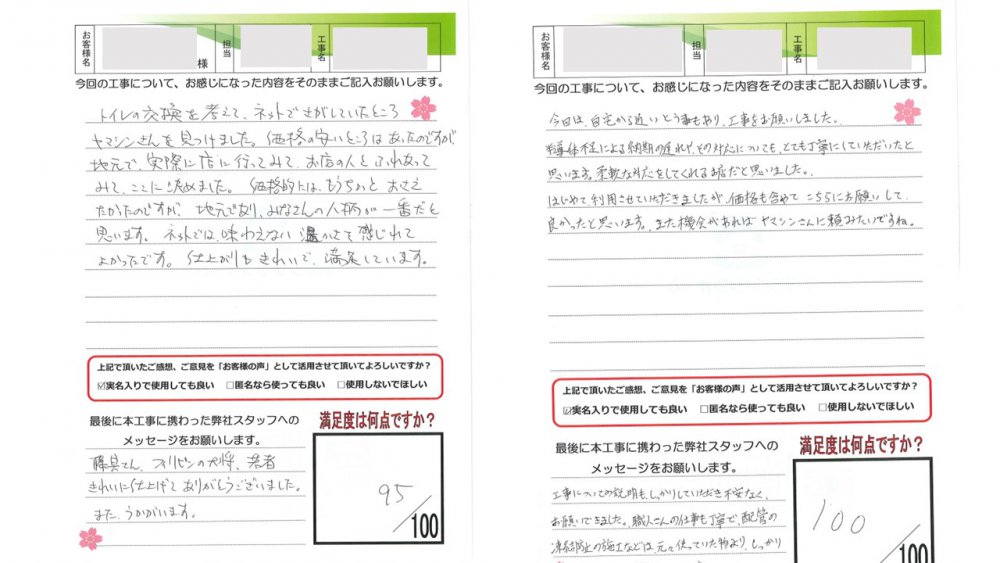 お客様名
様
担当
工事名
今回の工事について、お感じになった内容をそのままご記入お願いします。
トイレの交換を考えて、ネットでさがしていたところ
ヤマシンさんを見つけました。価格の安いところはあったのですが、
地元で、実際に店に行ってみて、お店の人とふれあって
みて、ここに決めました。価格的には、もうちょっとおさえ
たかったのですが、地元であり、みなさんの人柄が一番だと
思います。ネットでは、味わえない温かさを感じれて
よかったです。仕上がりもきれいで、満足しています。
上記で頂いたご感想、ご意見を「お客様の声」として活用させて頂いてよろしいですか？
☑実名入りで使用しても良い □匿名なら使っても良い □使用しないでほしい
最後に本工事に携わった弊社スタッフへの
メッセージをお願いします。
さん、フィリピンの大将、若者
きれいに仕上げてありがとうございました。
また、うかがいます。
満足度は何点ですか？
95/100
お客様名
担当
工事名
今回の工事について、お感じになった内容をそのままご記入お願いします。
今回は、自宅から近いとう事もあり、工事をお願いしました。
半導体不足による納期の遅れや、その対応についても、とても丁寧にしていただいたと
思います。柔軟な対応をしてくれるお店だと思いました。
はじめて利用させていただきましたが、価格も含めてこちらにお願いして
良かったと思います。また機会があればヤマシンさんに頼みたいですね。
上記で頂いたご感想、ご意見を「お客様の声」として活用させて頂いてよろしいですか？
☑実名入りで使用しても良い □匿名なら使っても良い □使用しないでほしい
最後に本工事に携わった弊社スタッフへの
メッセージをお願いします。
工事についての説明も、しっかりしていただき不安なく、
お願いできました。職人さんの仕事も丁寧で、配管の
凍結防止の施工などは元々使っていた物より、しっかり
満足度は何点ですか？
100/100